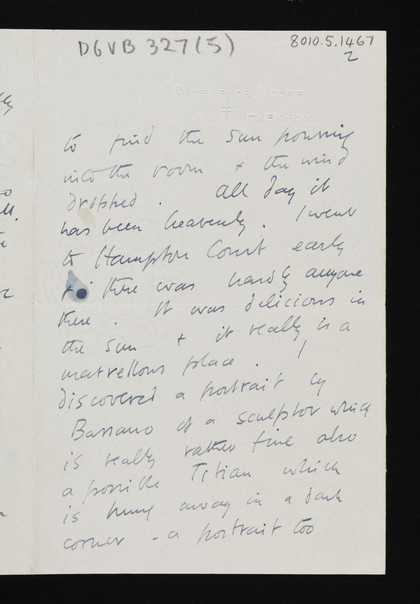 DGVB 327(5)
8010.5.1467
2
to find the sun pouring
into the room + the wind
dropped. All day it
has been heavenly. I went
to Hampton Court early
+ there was hardly anyone
there. It was delicious in
the sun + it really is a
marvellous place. I
discovered a portrait by
Bassano of a sculptor which
is really rather fine also
a possible Titian which
is hung away in a dark
corner - a portrait too